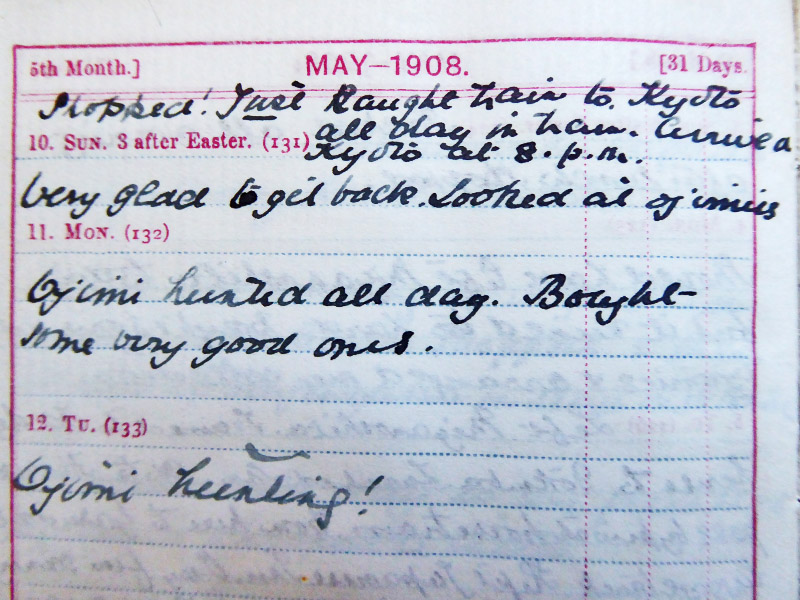 5th Month.] MAY—1908. [31 Days.
Shopped! Just Kaught train to Kyoto
10. SUN. 3 after Easter. (131) all day in train. Arrived
Kyoto at 8.p.m.
Very glad to get back. Looked at ojimies
11. MON. (132)
Ojimi hunted all day. Bought
some very good ones.
12. TU. (133)
Ojimi hunting!